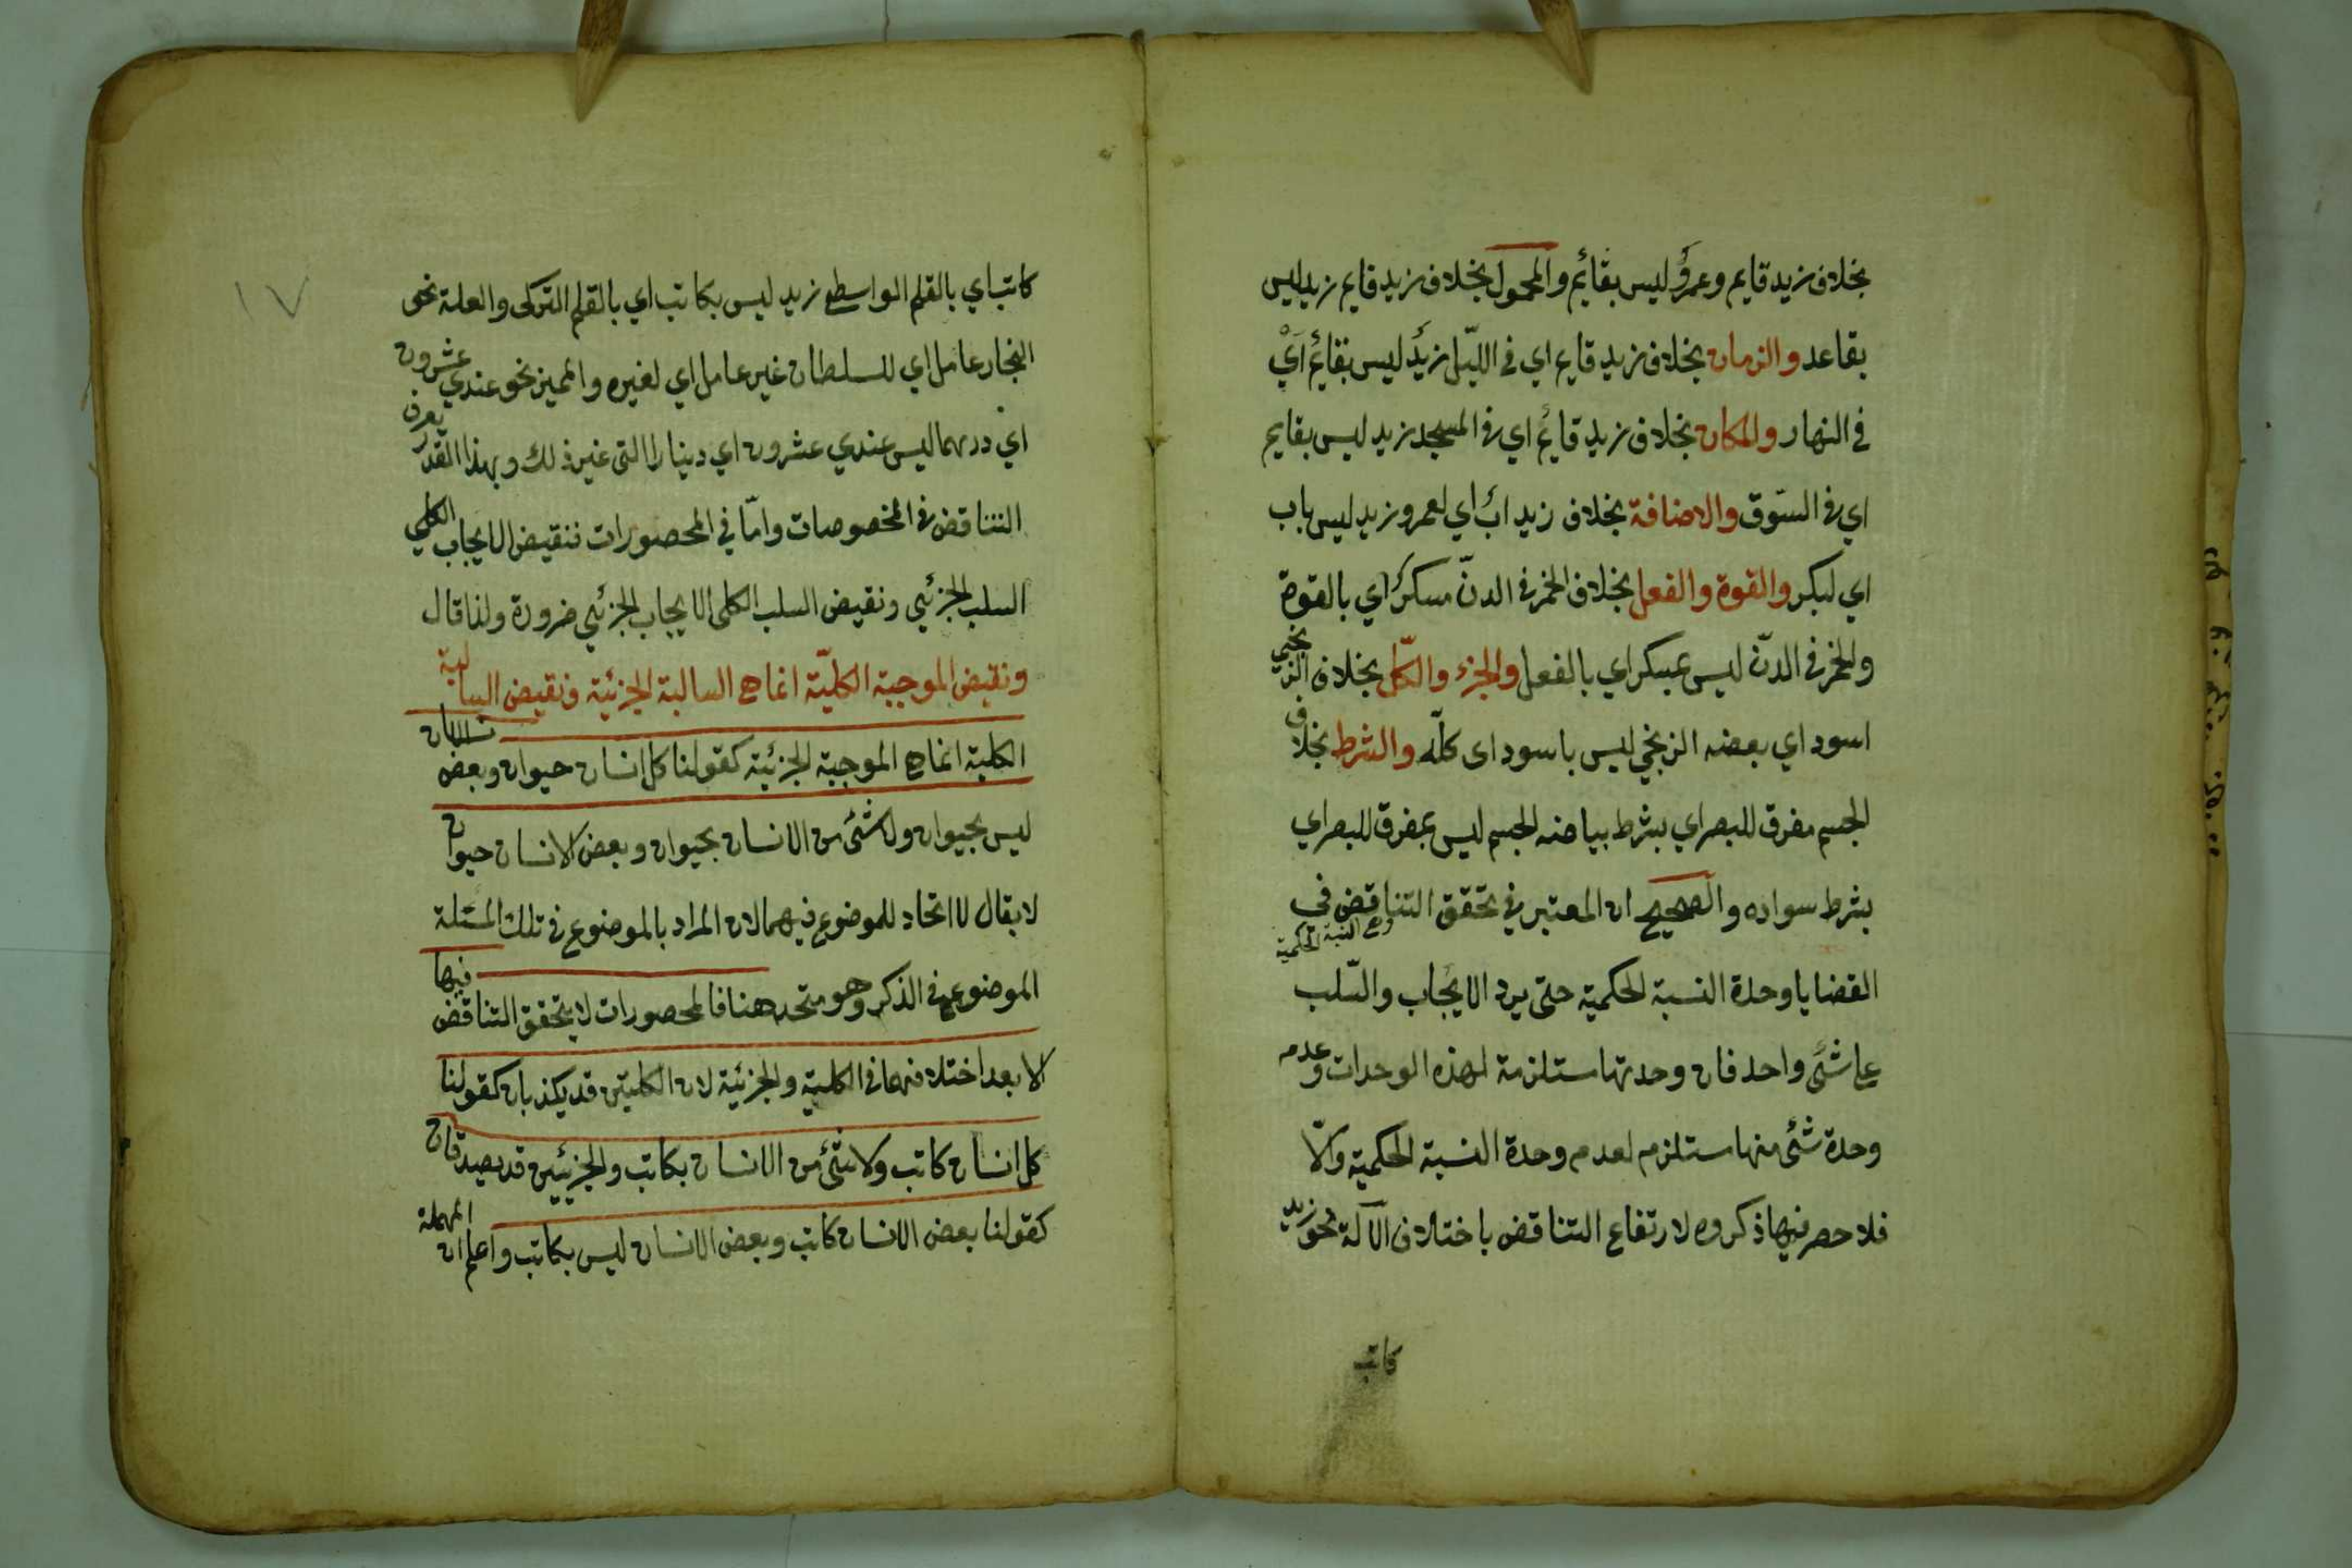 بخلاف زيد قايم وعمرو ليس بقائم والمحمول بخلاف زيد قايم زيد ليس
بقاعد والزمان بخلاف زيد قايم اي في الليل زيد ليس بقائم اي
في النهار والمكان بخلاف زيد قائم اي في المسجد زيد ليس بقايم
اي في السوق والاضافة بخلاف زيد اب اي لعمرو زيد ليس باب
اي لبكر والقوة والفعل بخلاف الخمر في الدن مسكر اي بالقوة
والخمر في الدن ليس بمسكر اي بالفعل والجزء والكل بخلاف الزنجي
اسود اي بعضه الزنجي ليس باسود اى كله والشرط بخلاف
الجسم مفرق للبصر اي بشرط بياضه الجسم ليس بمفرق للبصر اي
بشرط سواده والصحيح ان المعتبر في تحقق التناقض في
القضايا وحدة النسبة الحكمية حتى يرد الايجاب والسلب
على شئ واحد فان وحدتها مستلزمة لهذه الوحدات وعدم
وحدة شئ منها مستلزم لعدم وحدة النسبة الحكمية والا
فلا حصر فيما ذكروه لارتفاع التناقض باختلاف الآلة نحو زيد
كاتب
١٧
كاتب اي بالقلم الواسطي زيد ليس بكاتب اي بالقلم التركى والعلة نحو
النجار عامل اي للسلطان غير عامل اي لغيره والمميز نحو عندي عشرون
اي درهما ليس عندي عشرون اي دينارا الى غير ذلك وبهذا القدر يعرف
التناقض في المخصوصات واما في المحصورات فنقيض الايجاب الكلي
السلب الجزئي ونقيض السلب الكلى الايجاب الجزئي ضرورة ولذا قال
ونقيض الموجبة الكلية انما هي السالبة الجزئية ونقيض السالبة
الكلية انما هي الموجبة الجزئية كقولنا كل انسان حيوان وبعض الانسان
ليس بحيوان ولا شئ من الانسان بحيوان وبعض الانسان حيوان
لا يقال لا اتحاد للموضوع فيهما لان المراد بالموضوع في تلك المسئلة
الموضوع في الذكر وهو متحد هنا فالمحصورات لا يتحقق التناقض فيها
الا بعد اختلافهما في الكلية والجزئية لان الكليتين قد يكذبان كقولنا
كل انسان كاتب ولا شئ من الانسان بكاتب والجزئيين قد يصدقان
كقولنا بعض الانسان كاتب وبعض الانسان ليس بكاتب واعلم ان المهملة